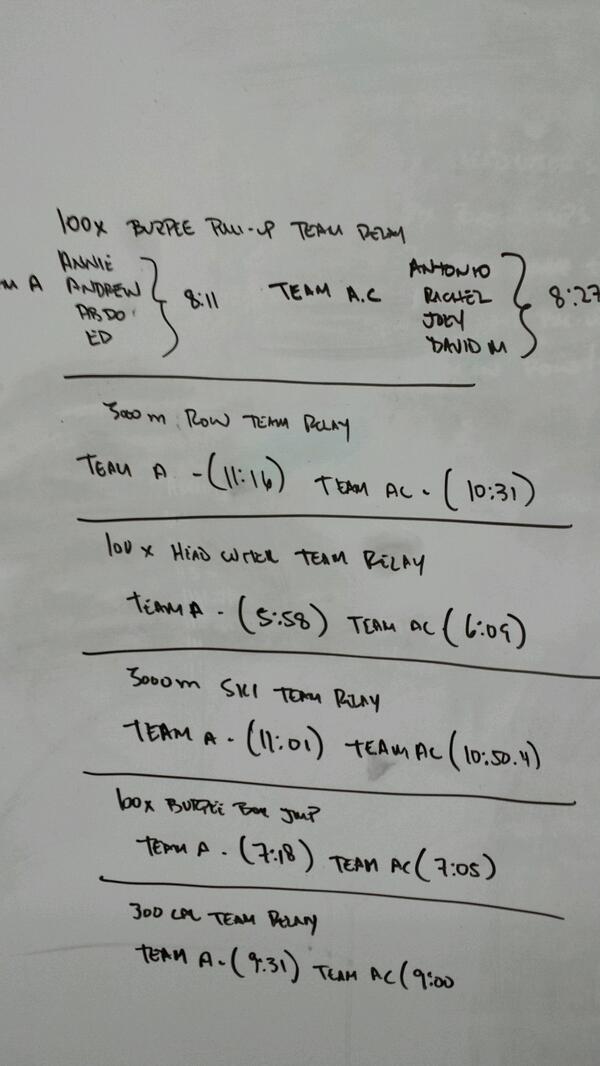 100x BURPEE PULL-UP TEAM RELAY
M A ANNIE ANDREW ABDO ED 8:11 TEAM A.C ANTONIO RACHEL JOEY DAVID M 8:27
3000m ROW TEAM RELAY
TEAM A - (11:16) TEAM AC - (10:31)
100x TEAM RELAY
TEAM A - (5:58) TEAM AC (6:09)
3000m SKI TEAM RELAY
TEAM A - (11:01) TEAM AC (10:50.4)
100x BURPEE BOX JMP
TEAM A - (7:18) TEAM AC (7:05)
300 CAL TEAM RELAY
TEAM A - (9:31) TEAM AC (9:00